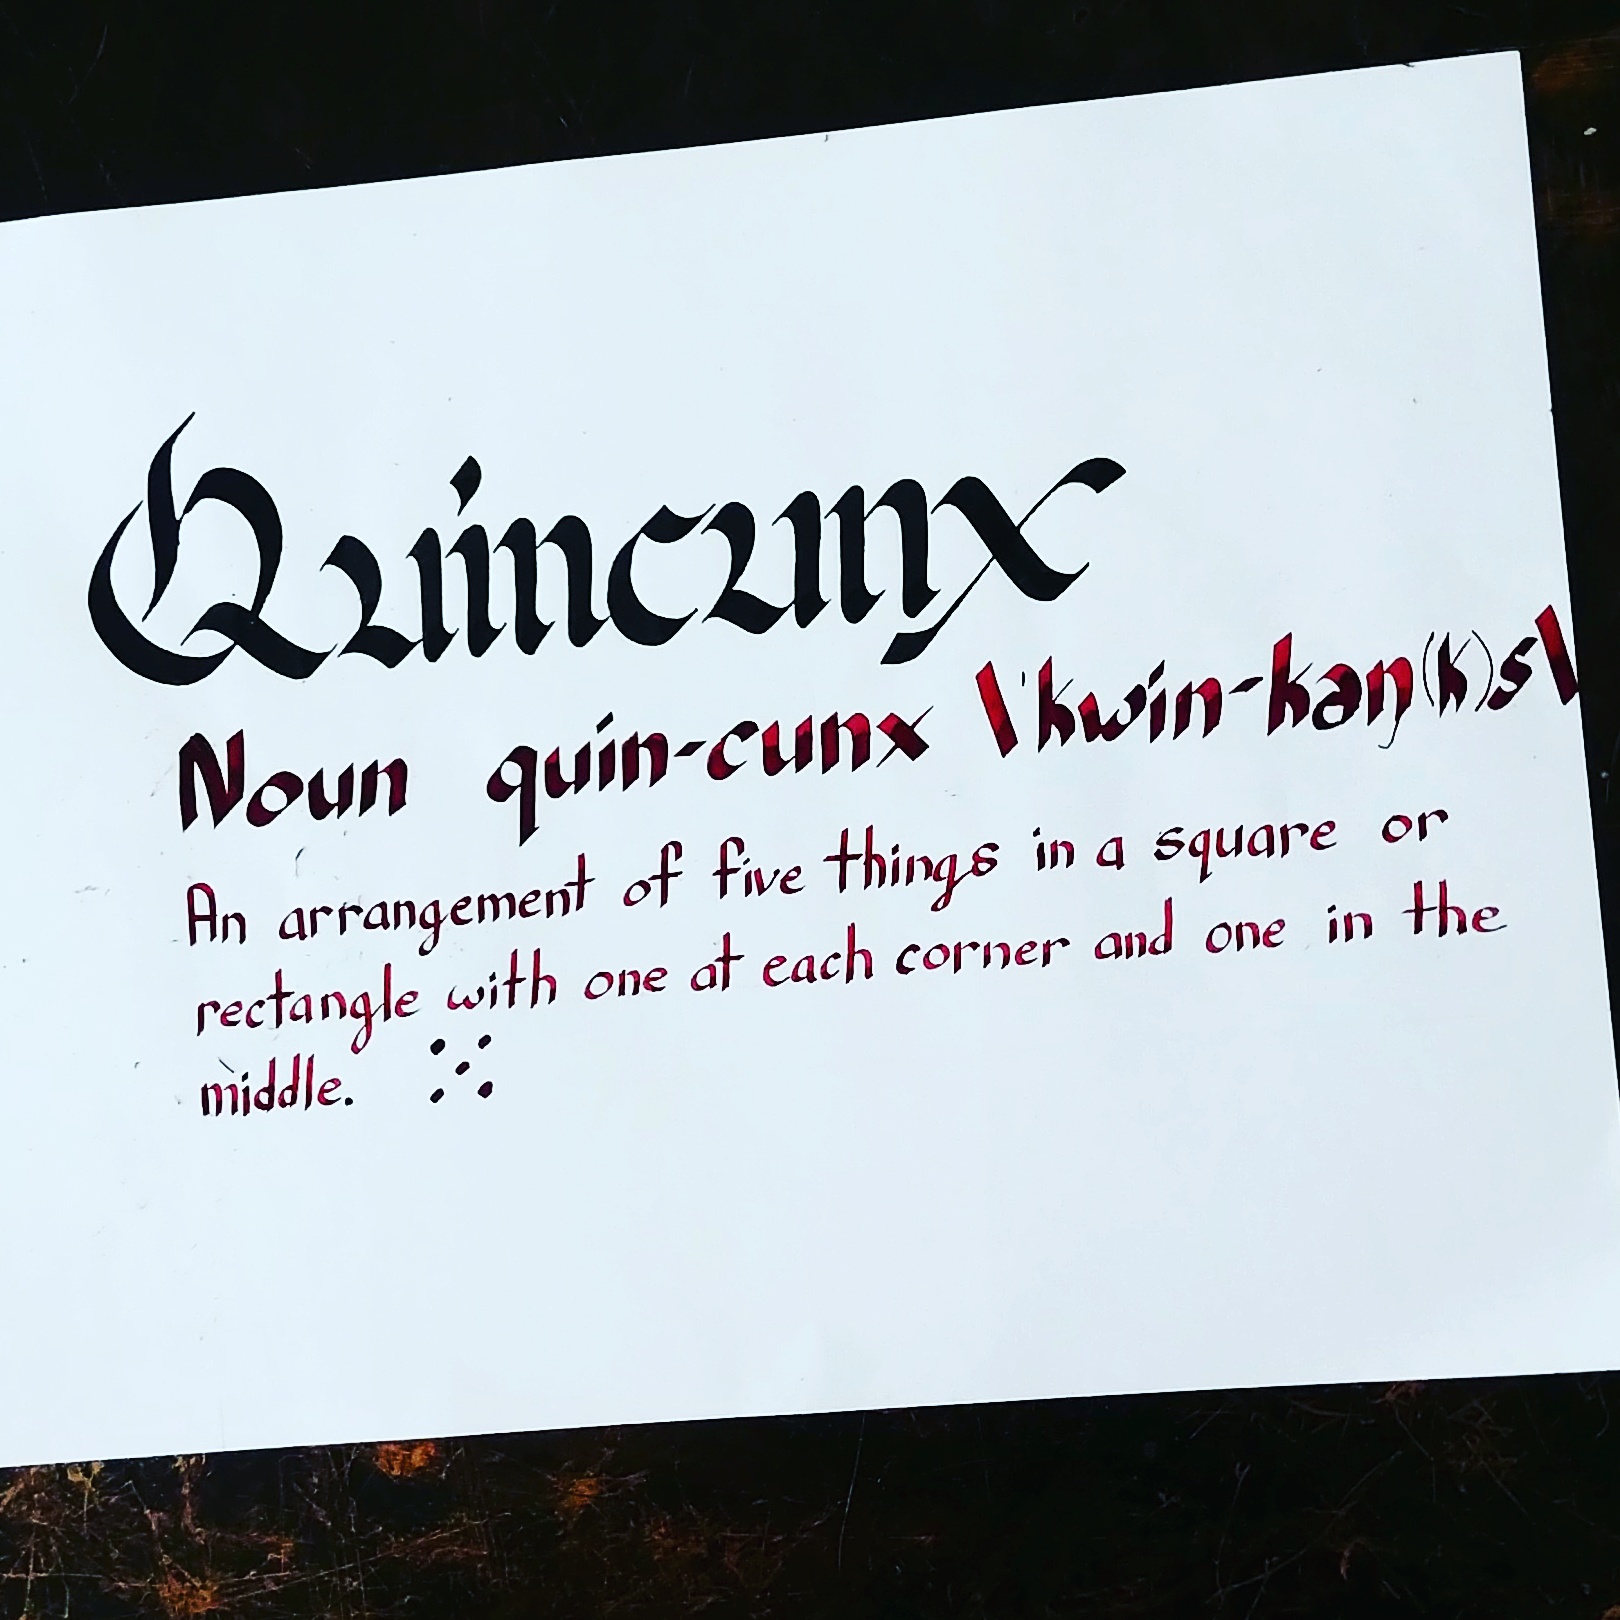 Quincunx
Noun quin-cunx \ˈkwin-kəŋ(k)s\
An arrangement of five things in a square or
rectangle with one at each corner and one in the
middle.